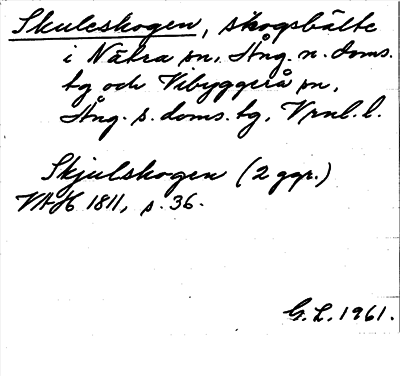 Skuleskogen, skogsbälte
i Nätra sn, Ång. n. doms.
tg och Vibyggerå sn,
Ång. s. doms. tg, Vrnl. l.
Skjulskogen (2 ggr.)
VAH 1811, s. 36.
G. L. 1961.